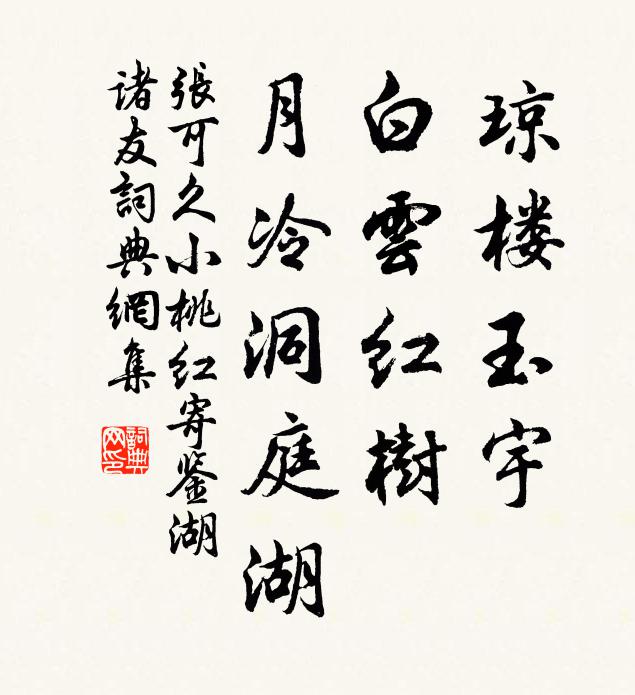 琼楼玉宇
白雲红樹
月冷洞庭湖
張可久小桃红寄鉴湖
诸友詞典網集
詞典
网印